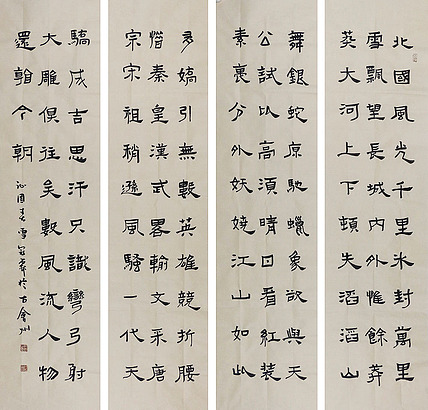 北國風光千里冰封萬里
雪飄望長城內外惟餘莽
莽大河上下頓失滔滔山
舞銀蛇原馳蠟象欲與天
公試比高須晴日看紅裝
素裹分外妖嬈江山如此
多嬌引無數英雄競折腰
惜秦皇漢武畧輸文采唐
宗宋祖稍遜風騷一代天
驕成吉思汗只識彎弓射
大雕俱往矣數風流人物
還看今朝
沁園春雪 於古會州